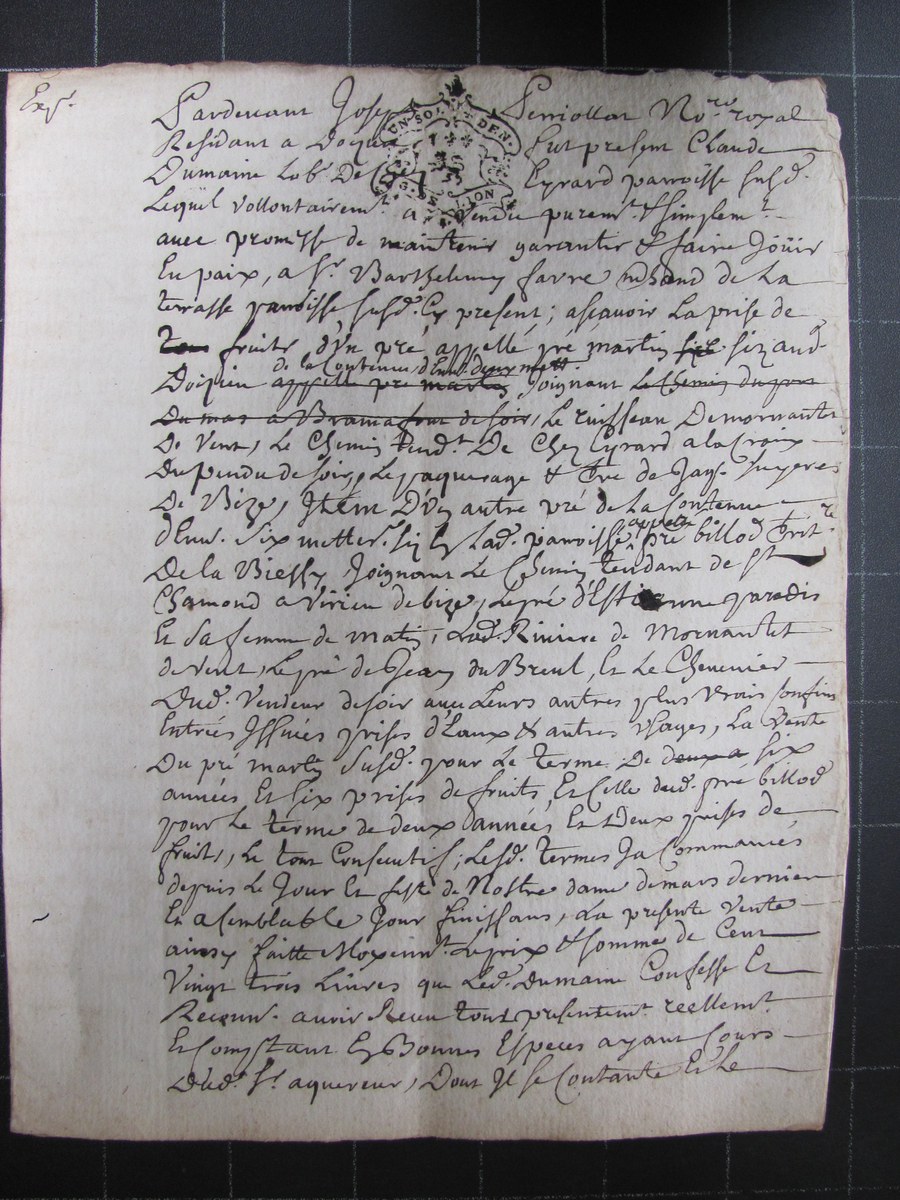 Exp.
Pardevant Joseph Perriollat No.re royal
Residant a Doizieu fut present Claude
Dumaine Lab.r De Eyrard parroisse susd.
UN SOL DEN
G. LION
Lequel vollontairem.t a vendu purem.t & simplem.t
avec promesse de maintenir garantir & faire Joüir
En paix, a S.r Barthelemy favre mchand de la
terrasse parroisse susd. Ey present; ascavoir La prise de
fruits d'Un pré appellé pré martin sizaud.
de la Contenue d'Env. deux mett.
Doizieu appellé pré martin Joignant Le Chemin
Dumas a a Bramafont de soir, Le ruisseau De mornantet
De Vent, Le Chemin tend.t De Chez Eyrard a la Croix
Du pendu de soir, Le paquerage & tre de Jaq. Suyeres
De Bize, Item D'Uy autre pré de La Contenue
appellé
d'Env. Six metter. sis Ey Lad. parroisse pré billod
De la Biessy Joignant Le Chemin tendant de S.t
Chamond a Virieu de bize, Le pré d'Estienne paradis
Et Sa femme de matin, Lad. Riviere de Mornantet
de vent, Le pré de Jean du Breul, Et Le Chenevier
Dud. Vendeur de soir avec Leurs autres plus vrais Confins
Entrées Issuës prises d'Eaux & autres Usages, La Vente
Du pré martin Susd. pour Le terme De deux a six
années Et Six prises de fruits, Et Celle dud. pré billod
pour Le terme de deux années Et Deux prises de
fruits, Le tout Consecutifs; Lesd. termes Ja Commancés
depuis Le Jour Et feste de Nostre dame de mars dernier
Et a semblable Jour finissans, La presente Vente
ainsy faitte Moyenn.t Le prix & somme de Cent
Vingt trois Livres que Led. Dumaine Confesse Et
Reconn. avoir Receu tout presentem.t reellem.t
Et Comptant Ey Bonnes Especes ayant Cours
Dud. S.r aquereur, Dont Il se Contante Et Le